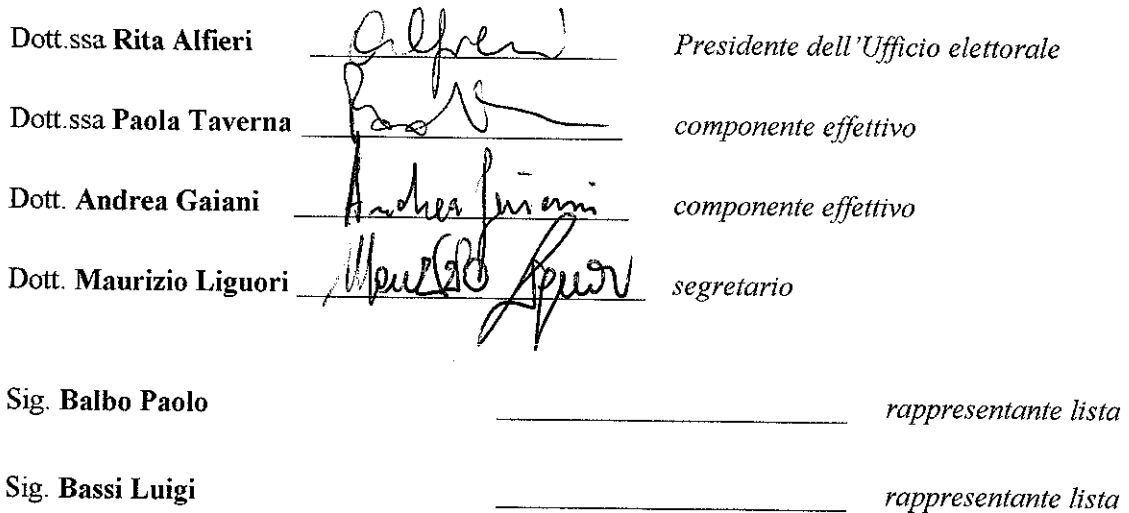 Dott.ssa Rita Alfieri Alfieri Presidente dell'Ufficio elettorale
Dott.ssa Paola Taverna componente effettivo
Dott. Andrea Gaiani Andrea Gaiani componente effettivo
Dott. Maurizio Liguori Maurizio Liguori segretario
Sig. Balbo Paolo rappresentante lista
Sig. Bassi Luigi rappresentante lista